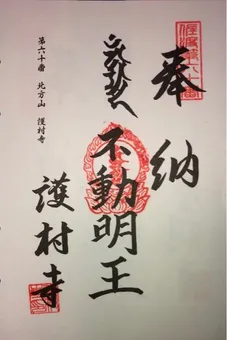 奉納
不動明王
護村寺
第六十番　北方山　護村寺